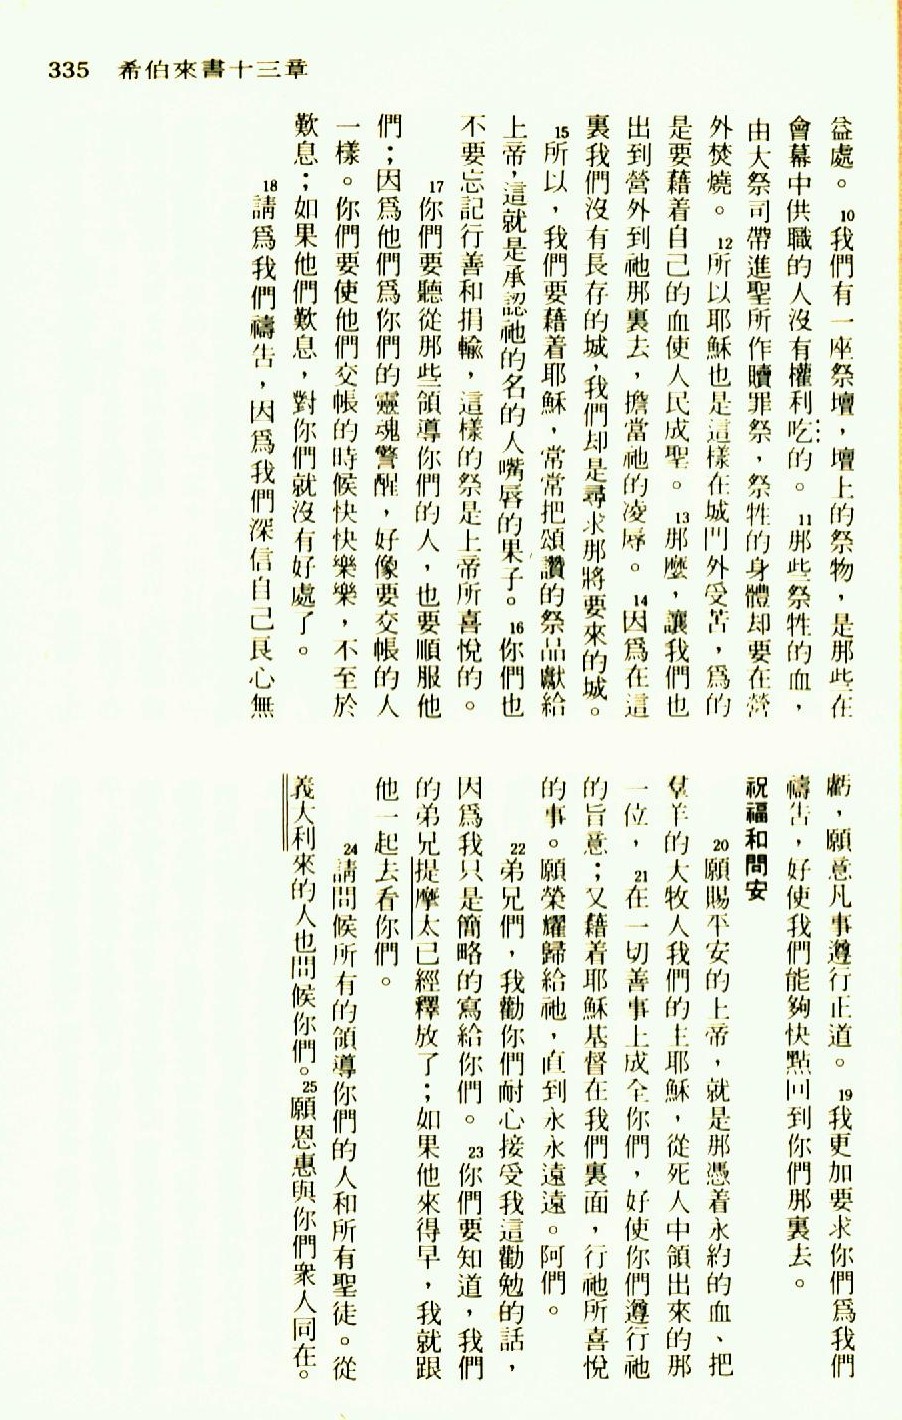 335 希伯來書十三章
益處。10我們有一座祭壇，壇上的祭物，是那些在
會幕中供職的人沒有權利吃的。11那些祭牲的血，
由大祭司帶進聖所作贖罪祭，祭牲的身體却要在營
外焚燒。12所以耶穌也是這樣在城門外受苦，爲的
是要藉着自己的血使人民成聖。13那麼，讓我們也
出到營外到祂那裏去，擔當祂的凌辱。14因爲在這
裏我們沒有長存的城，我們却是尋求那將要來的城。
15所以，我們要藉着耶穌，常常把頌讚的祭品獻給
上帝，這就是承認祂的名的人嘴唇的果子。16你們也
不要忘記行善和捐輸，這樣的祭是上帝所喜悅的。
17你們要聽從那些領導你們的人，也要順服他
們；因爲他們爲你們的靈魂警醒，好像要交帳的人
一樣。你們要使他們交帳的時候快快樂樂，不至於
歎息；如果他們歎息，對你們就沒有好處了。
18請爲我們禱告，因爲我們深信自己良心無
虧，願意凡事遵行正道。19我更加要求你們爲我們
禱告，好使我們能夠快點回到你們那裏去。
祝福和問安
20願賜平安的上帝，就是那憑着永約的血、把
羣羊的大牧人我們的主耶穌，從死人中領出來的那
一位，21在一切善事上成全你們，好使你們遵行祂
的旨意；又藉着耶穌基督在我們裏面，行祂所喜悅
的事。願榮耀歸給祂，直到永永遠遠。阿們。
22弟兄們，我勸你們耐心接受我這勸勉的話，
因爲我只是簡略的寫給你們。23你們要知道，我們
的弟兄提摩太已經釋放了；如果他來得早，我就跟
他一起去看你們。
24請問候所有的領導你們的人和所有聖徒。從
義大利來的人也問候你們。25願恩惠與你們衆人同在。